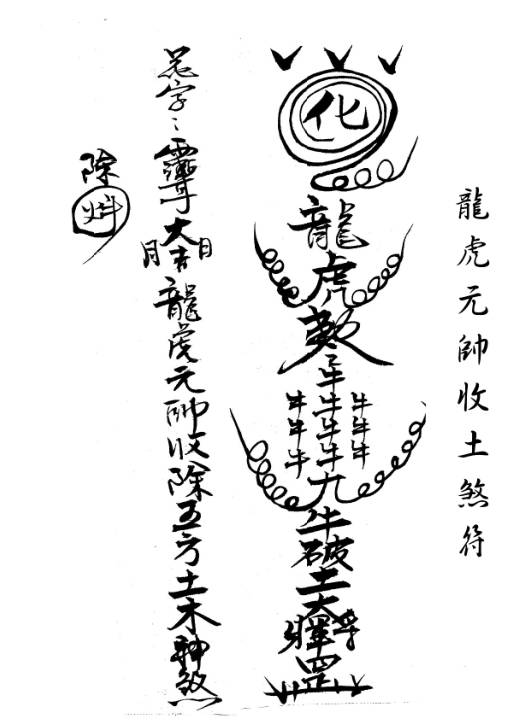 龍虎元帥收土煞符
化
龍
虎
敕
牛牛牛牛
牛牛牛
牛牛牛
九牛破土大
罡
大吉
月 日
龍虎元帥收除五方土木神煞
除